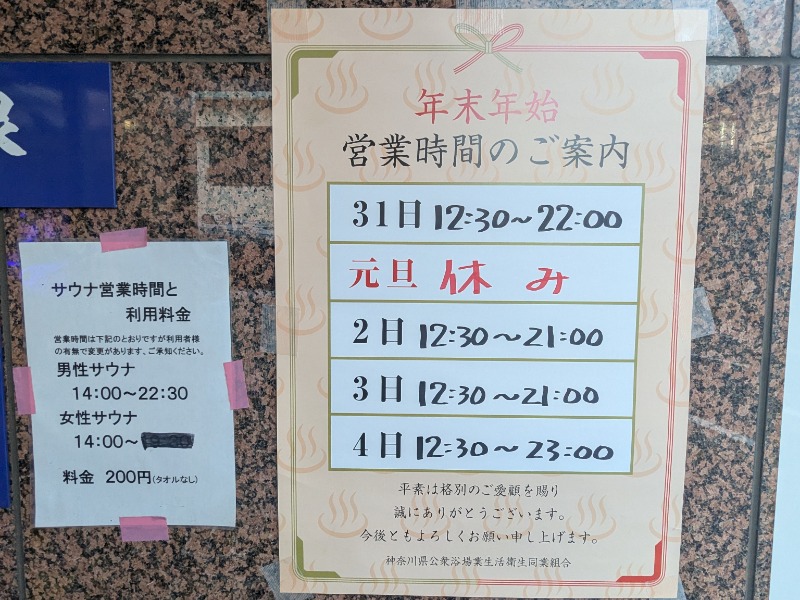 サウナ営業時間と
利用料金
営業時間は下記のとおりですが利用者様
の有無で変更があります、ご承知ください。
男性サウナ
14:00～22:30
女性サウナ
14:00～
料金 200円(タオルなし)
年末年始
営業時間のご案内
31日 12:30～22:00
元旦 休み
2日 12:30～21:00
3日 12:30～21:00
4日 12:30～23:00
平素は格別のご愛顧を賜り
誠にありがとうございます。
今後ともよろしくお願い申し上げます。
神奈川県公衆浴場業生活衛生同業組合